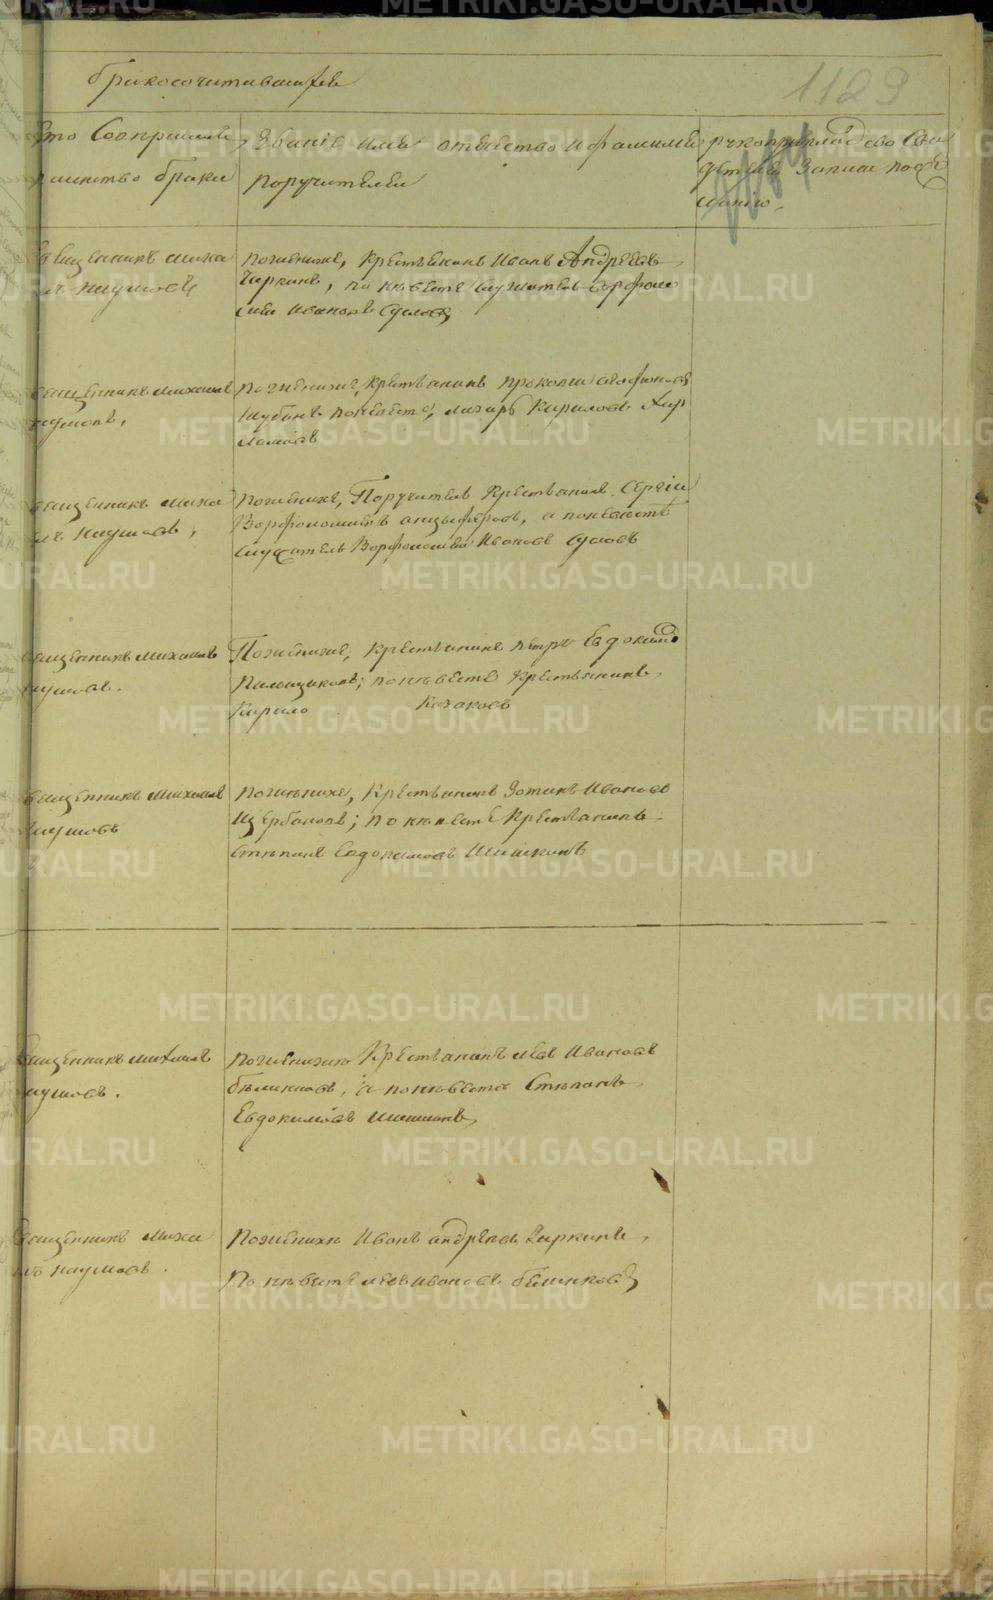 бракосочитавшихся
1129
Кто Совершалъ
таинство брака
Званіе имя отчество и фамилия
поручителей
рукоприкладство Сви
детелей Записи по же
ланію
Священникъ Миха
илъ Наумовъ
по женихе, Крестьянинъ Иванъ Андреевъ
Чиркинъ, по невесте служитель Ворфоло
мей Ивановъ Сусловъ
Священникъ Михаилъ
Наумовъ,
по женихе, Крестьянинъ Прокопий
Шубинъ по невесте, Кириловъ
Священникъ Миха
илъ Наумовъ,
по женихе, Поручитель Крестьянинъ Сергій
Ворфоломеевъ анцыферовъ, а по невесте
служитель Ворфоломей Ивановъ Сусловъ
Священникъ Михаилъ
Наумовъ.
По женихе, Крестьянинъ Петръ Евдокимовъ
Пильщиковъ; по невесте Крестьянинъ
Кирило Казаковъ
Священникъ Михаилъ
Наумовъ
по женихе, Крестьянинъ Зотикъ Ивановъ
Щербаковъ; по невесте Крестьянинъ
Степанъ Евдокимовъ Шишкинъ
Священникъ Михаилъ
Наумовъ.
по женихе Крестьянинъ Левъ Ивановъ
беликовъ, а по невесте Степанъ
Евдокимовъ Шишкинъ
Священникъ Миха
илъ Наумовъ.
По женихе Иванъ андреевъ Чиркинъ,
По невесте Левъ Ивановъ беликовъ
METRIKI.GASO-URAL.RU